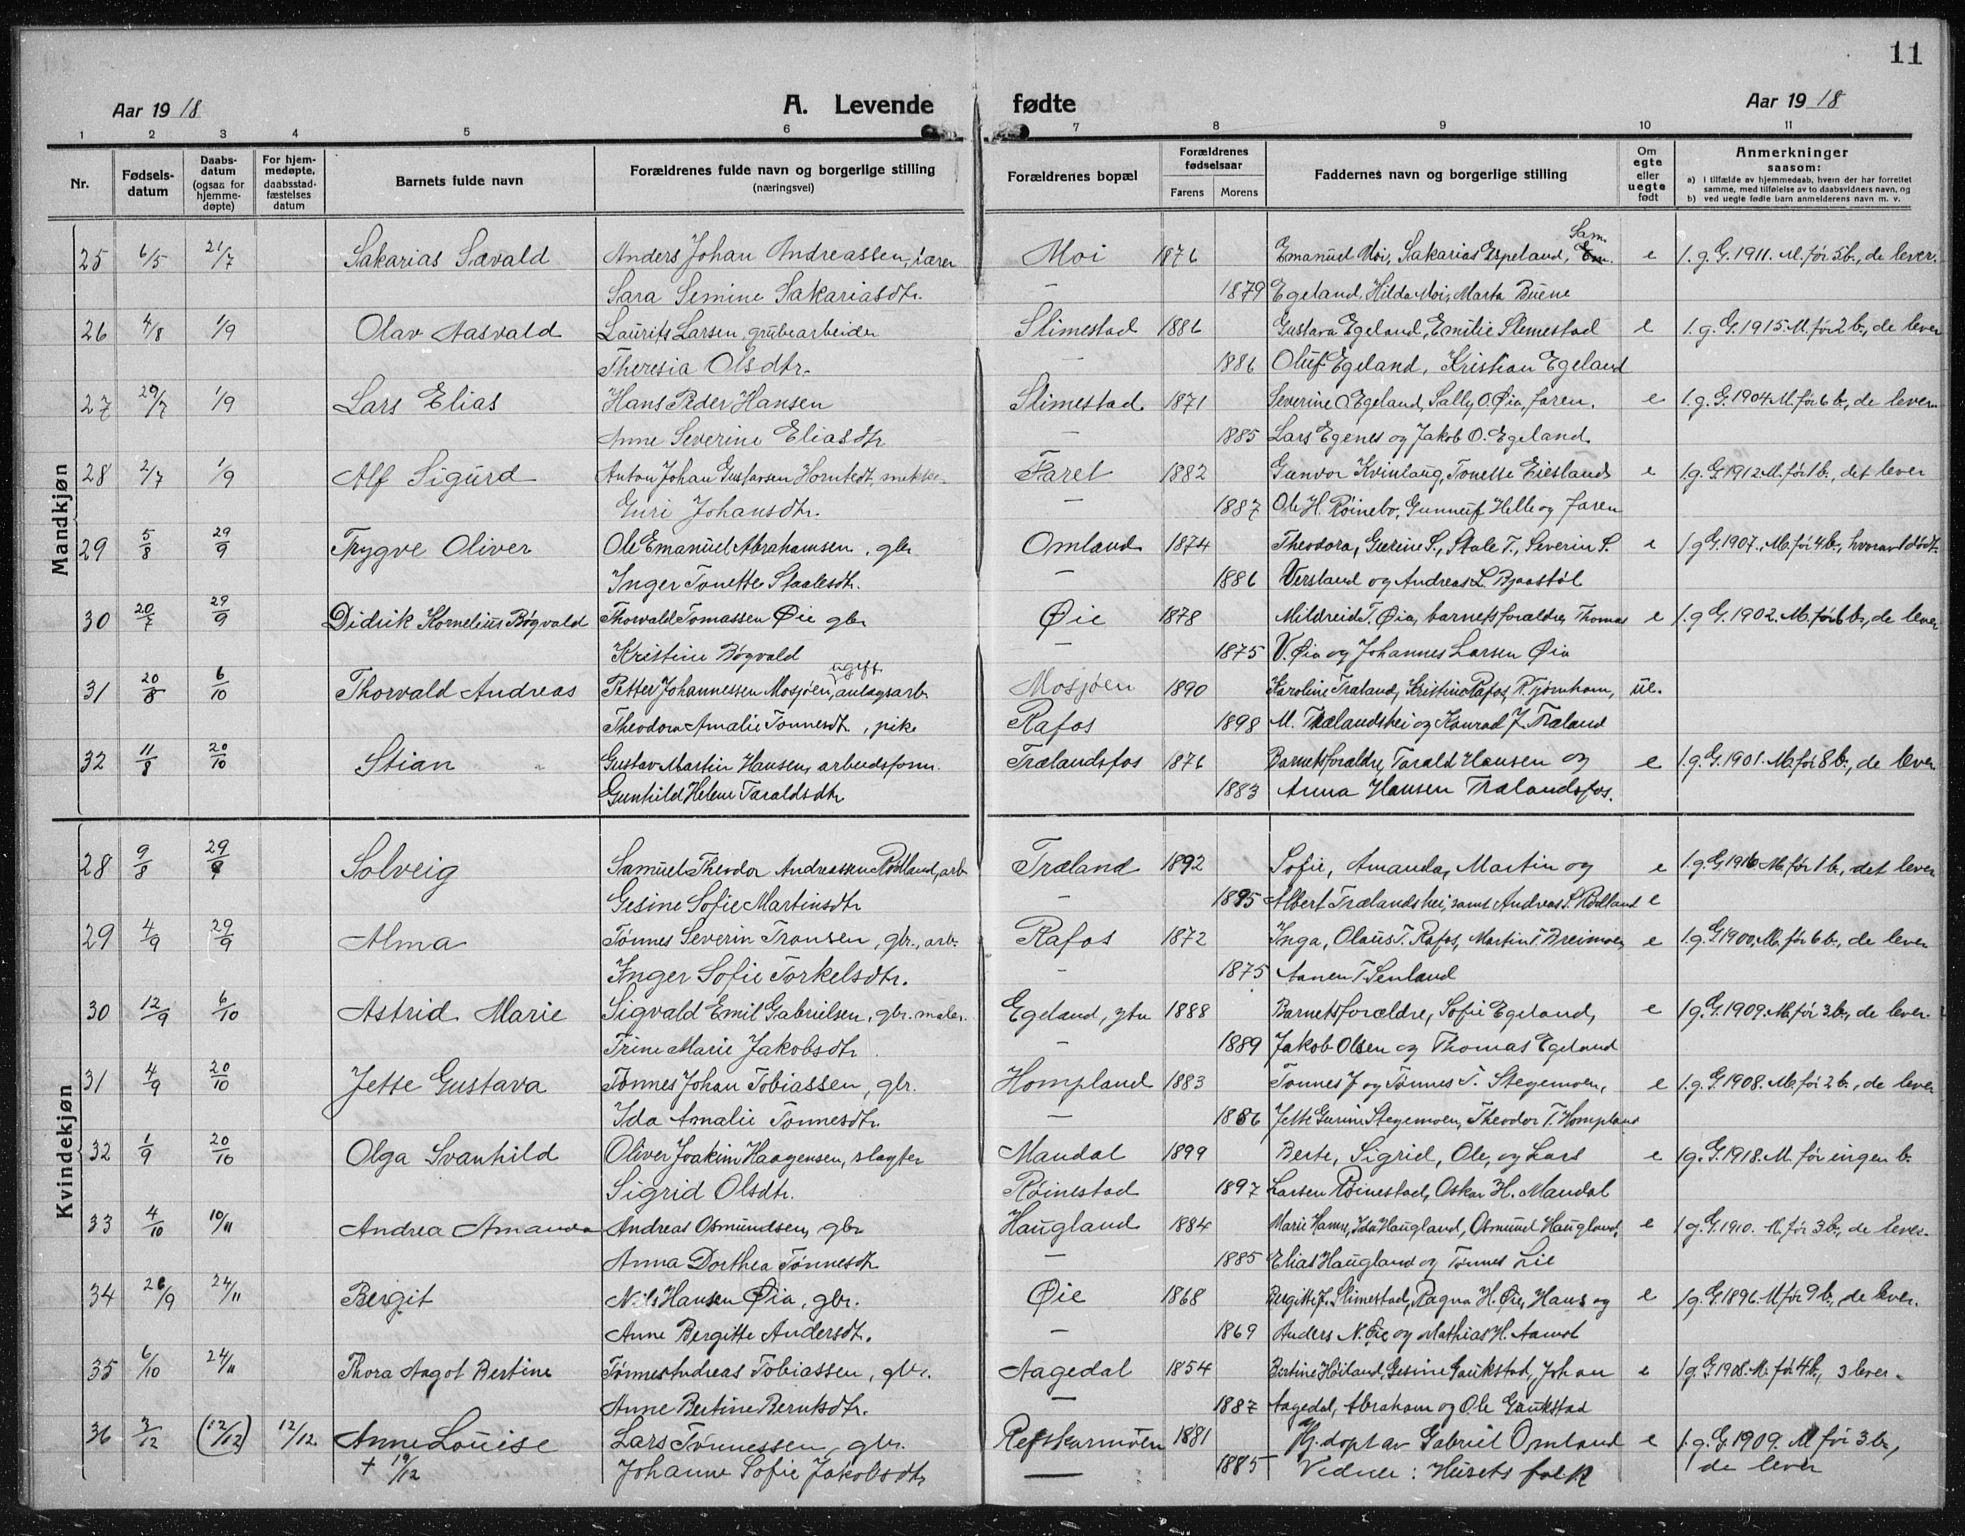 11
Aar 1918 A. Levende fødte Aar 1918
1 2 3 4 5 6 7 8 9 10 11
Nr. Fødsels-datum Daabs-datum (ogsaa for hjemme-døpte) For hjem-medøpte, daabsstad-fæstelses datum Barnets fulde navn Forældrenes fulde navn og borgerlige stilling (næringsvei) Forældrenes bopæl Forældrenes fødselsaar Farens Morens Faddernes navn og borgerlige stilling Om egte eller uegte født Anmerkninger saasom: a) i tilfælde av hjemmedaab, hvem der har forrettet samme, med tilføielse av to daabsvidners navn, og b) ved uegte fødte barn anmelderens navn m. v.
Mandkjøn
25 6/5 21/7 Sakarias Sævald Anders Johan Andreassen, lærer Moi 1876 Emanuel Moi, Sakarias Espeland, Sam. e 1. g. G. 1911. M. før 5 b., de lever.
Sara Semine Sakariasdtr. — 1879 Egeland, Hilda Moi, Marta Buene
26 4/8 1/9 Olav Aasvald Laurits Larsen, grubearbeider Slimestad 1886 Gustava Egeland, Emilie Slemestad e 1. g. G. 1915. M. før 2 b., de lever
Theresia Olsdtr. — 1886 Oluf Egeland, Kristian Egeland
27 29/7 1/9 Lars Elias Hans Peder Hansen Slimestad 1871 Severine O. Egeland, Sally O. Øia, faren. e 1. g. G. 1904 M. før 6 b., de lever
Anne Severine Eliasdtr — 1885 Lars Egenes og Jakob O. Egeland.
28 2/7 1/9 Alf Sigurd Anton Johan Gustavsen Hornfedt, Faret 1882 Gunvor Kvinlaug, Tonette Eiesland e 1g. G. 1912. M. før 1 b., det lever
Guri Johansdtr. — 1887 Ole H. Røinebo, Gunneuf Helle og faren
29 5/8 29/9 Trygve Oliver Ole Emanuel Abrahamsen, gbr Omland 1874 Theodora, Gurine S., Stale T., Severin S. e 1 g G. 1907. M. før 4 b., hvorav 1 dødt.
Inger Tonette Staalesdtr. — 1886 Versland og Andreas L. Bjaastøl
30 20/7 29/9 Didrik Kornelius Bøgvald Thorvald Tomassen Øie gbr Øie 1878 Mildreid T. Øia, barnets forældre, Thomas e 1. g G. 1902. M. før 6 b., de lever
Kristine Bøgvald — 1875 V. Øia og Johannes Larsen Øia
31 20/8 6/10 Thorvald Andreas Petter Johannessen Mosjøen, ugift, anlagsarb. Mosjøen 1890 Karoline Træland, Kristine Rafos, R. Tjørnhom, ue.
Theodora Amalie Tønnesdtr, pike Rafos 1898 M. Trælandshei og Konrad J. Træland
32 11/8 20/10 Stian Gustav Martin Hansen, arbeidsform. Trælandsfos 1876 Barnets forældre, Tarald Hansen og e 1. g. G. 1901. M. før 8 b., de lever
Gunhild Helene Taraldsdtr — 1883 Anna Hansen Trælandsfos.
Kvindekjøn
28 9/8 29/9 Solveig Samuel Theodor Andreassen Rødland, arb Træland 1892 Sofie, Amanda, Martin og e 1. g. G. 1916 M. før 1 b., det lever
Gesine Sofie Martinsdtr — 1895 Albert Trælandshei, samt Andreas S. Rødland e
29 4/9 29/9 Alma Tønnes Severin Tronsen, gbr., arb. Rafos 1872 Inga, Olaus T. Rafos, Martin T. Breimoen, e 1. g. G 1900, M. før 6 b., de lever
Inger Sofie Torkelsdtr. — 1875 Aanen T. Senland
30 12/9 6/10 Astrid Marie Sigvald Emil Gabrielsen, gbr. maler. Egeland, ytre 1888 Barnets forældre, Sofie Egeland, e 1 g. G. 1909. M. før 3 b., de lever.
Trine Marie Jakobsdtr — 1889 Jakob Olsen og Thomas Egeland
31 4/9 20/10 Jette Gustava Tønnes Johan Tobiassen, gbr. Hompland 1883 Tonnes J og Tønnes T. Stegemoen, e 1. g. G. 1908. M. før 2 b., de lever
Ida Amalie Tønnesdtr. — 1886 Jette Gurine Stegemoen, Theodor T. Hompland
32 1/9 20/10 Olga Svanhild Oliver Joakim Haagensen, slagter Mandal 1899 Berte, Sigrid, Ole, og Lars e 1g. G. 1918. M. før ingen b.
Sigrid Olsdtr. Røinestad 1897 Larsen Røinestad, Oskar H. Mandal
33 4/10 10/11 Andrea Amanda Andreas Osmundsen, gbr Haugland 1884 Marie Hamre, Ida Haugland, Osmund Haugland, e 1 g. G. 1910. M. før 3 b., de lever.
Anna Dorthea Tønnesdtr — 1885 Elias Haugland og Tønnes Lie
34 26/9 24/11 Bergit Nils Hansen Øia, gbr. Øie 1868 Bergitte J. Slimestad, Ragna H. Øie, Hans og e 1g. G. 1896. M. før 9 b., de lever.
Anne Bergitte Andersdtr. — 1869 Anders N. Øie og Mathias H. Aamot
35 6/10 24/11 Thora Aagot Bertine Tønnes Andreas Tobiassen, gbr. Aagedal 1854 Bertine Høiland, Gesine Gaukstad, Johan e 1 g. G 1908. M. før 4 b., 3 lever.
Anne Bertine Berntsdtr. — 1887 Aagedal, Abraham og Ole Gaukstad
36 3/12 (12/12) 12/12 Anne Louise Lars Tønnessen, gbr. Refskarmoen 1881 Hj. døpt av Gabriel Omland e 1. g. G. 1909. M før 3 b.,
+ 19/12 Johanne Sofie Jakobsdtr — 1885 Vidner: Husets folk de lever